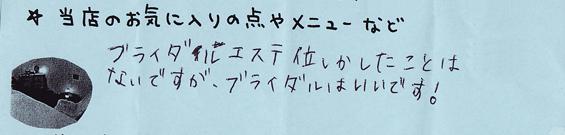 ☆ 当店のお気に入りの点やメニューなど
ブライダルエステ位しかしたことは
ないですが、ブライダルはいいです!